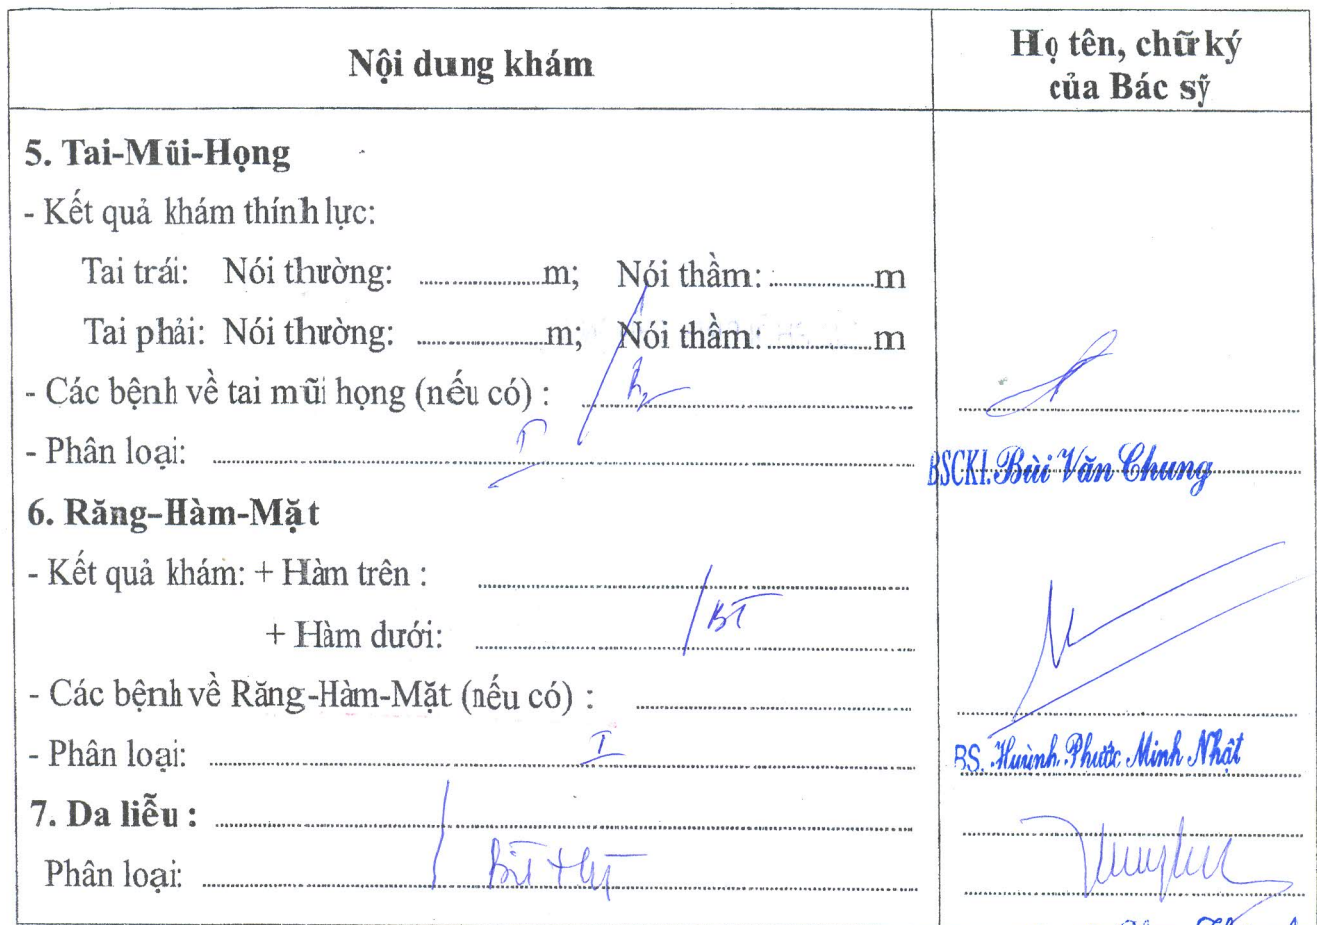 Nội dung khám
Họ tên, chữ ký
của Bác sỹ
5. Tai-Mũi-Họng
- Kết quả khám thính lực:
Tai trái: Nói thường: ....................m; Nói thầm: ..................m
Tai phải: Nói thường: ....................m; Nói thầm: ..................m
- Các bệnh về tai mũi họng (nếu có) :
- Phân loại: I
BSCKI. Bùi Văn Chung
6. Răng-Hàm-Mặt
- Kết quả khám: + Hàm trên :
BT
+ Hàm dưới:
- Các bệnh về Răng-Hàm-Mặt (nếu có) :
- Phân loại: I
BS. Huỳnh Phước Minh Nhật
7. Da liễu :
Phân loại: